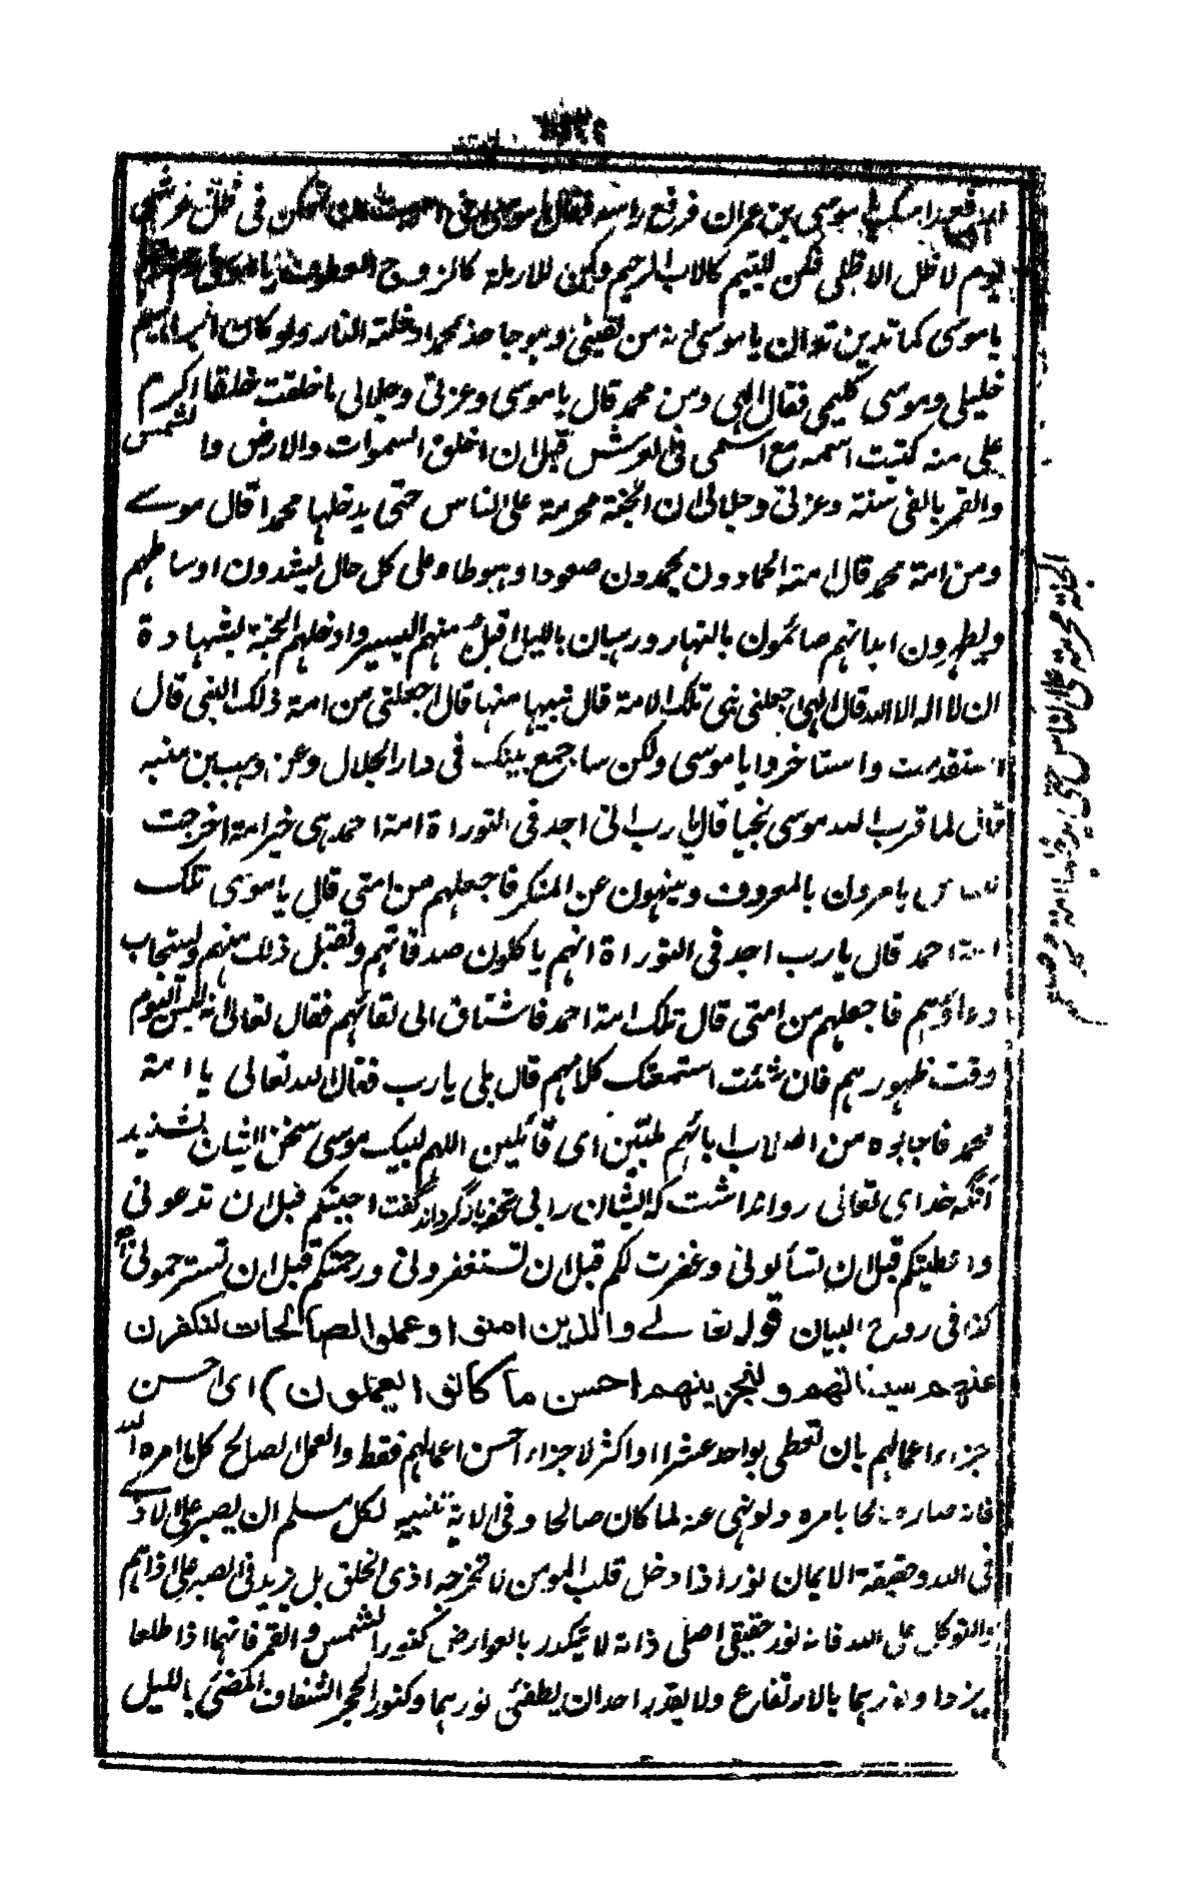 موسى بن عمران فرفع راسه فقال يا موسى ان تسكن فى ظل عرشى
يوم لا ظل الا ظلى فكن لليتيم كالاب الرحيم وكن للارملة كالزوج العطوف يا
يا موسى كما تدين تدان يا موسى انه من لقينى وهو جاحد محمدا دخلته النار ولو كان ابراهيم
خليلى وموسى كليمى فقال الهى ومن محمد قال يا موسى وعزتى وجلالى ما خلقت خلقا اكرم
على منه كتبت اسمه مع اسمى فى العرش قبل ان اخلق السموات والارض والشمس
والقمر بالفى سنة وعزتى وجلالى ان الجنة محرمة على الناس حتى يدخلها محمد اقال موسے
ومن امة محمد قال امته الحمادون يحمدون صعودا وهبوطا وعلى كل حال يشدون اوساطهم
ويطهرون ابدانهم صائمون بالنهار ورهبان بالليل اقبل منهم اليسير وادخلهم الجنة بشهادة
ان لا اله الا الله قال الهى اجعلنى نبى تلك الامة قال نبيها منها قال اجعلنى من امة ذلك النبى قال
استقدمت واستاخروا يا موسى ولكن ساجمع بينك فى دار الجلال وعن وهب بن منبه
قال لما قرب الله موسى نجيا قال يا رب انى اجد فى التوراة امة احمد هى خير امة اخرجت
للناس يامرون بالمعروف وينهون عن المنكر فاجعلهم من امتى قال يا موسى تلك
امة احمد قال يا رب اجد فى التوراة انهم ياكلون صدقاتهم وتقبل ذلك منهم ويستجاب
دعاؤهم فاجعلهم من امتى قال تلك امة احمد فاشتاق الى لقائهم فقال تعالى انه ليس اليوم
وقت ظهورهم فان شئت استمعتك كلامهم قال بلى يا رب فقال الله تعالى يا امة
محمد فاجابوه من اصلاب ابائهم ملبين اى قائلين اللهم لبيك موسى سخن ايشان بشنيد
آنگه خداى تعالى روا نداشت كه ايشان را بى تحفه باز گرداند گفت اجبتكم قبل ان تدعونى
واعطيتكم قبل ان تسألونى وغفرت لكم قبل ان تستغفرونى ورحمتكم قبل ان تسترحمونى
كذا فى روح البيان قوله تعالے والذين امنوا وعملوا الصالحات لنكفرن
عنهم سيئاتهم ولنجزينهم احسن ما كانوا يعملون) اى احسن
جزاء اعمالهم بان تعطى بواحد عشرا واكثر لا جزاء احسن اعمالهم فقط والعمل الصالح كل ما امره الله
فانه صار صالحا بامره ولو نهى عنه لما كان صالحا وفى الاية تنبيه لكل مسلم ان يصبر على الاذى
فى الله وحقيقة الايمان نور اذا دخل قلب المومن لا تخرجه اذى الخلق بل يزيد فى الصبر على اذاهم
والتوكل على الله فانه نور حقيقى اصلى ذاته لا يتكدر بالعوارض كنور الشمس والقمر فانهما اذا طلعا
يزداد نورهما بالارتفاع ولا يقدر احد ان يطفئ نورهما وكنور الحجر الشفاف المضئ بالليل
الجنة محرمة على الناس حتى يدخلها امة محمد